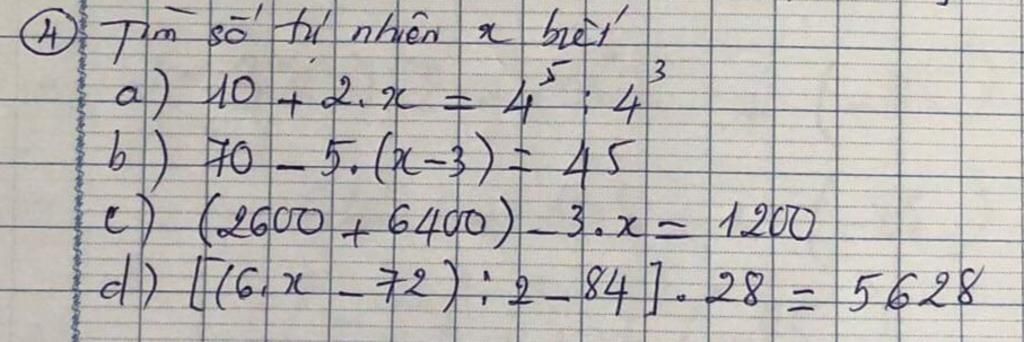 ④ Tìm số tự nhiên x biết
a) 10 + 2.x = 4⁵ : 4³
b) 70 - 5.(x-3) = 45
c) (2600 + 6400) - 3.x = 1200
d) [(6.x - 72) : 2 - 84] . 28 = 5628